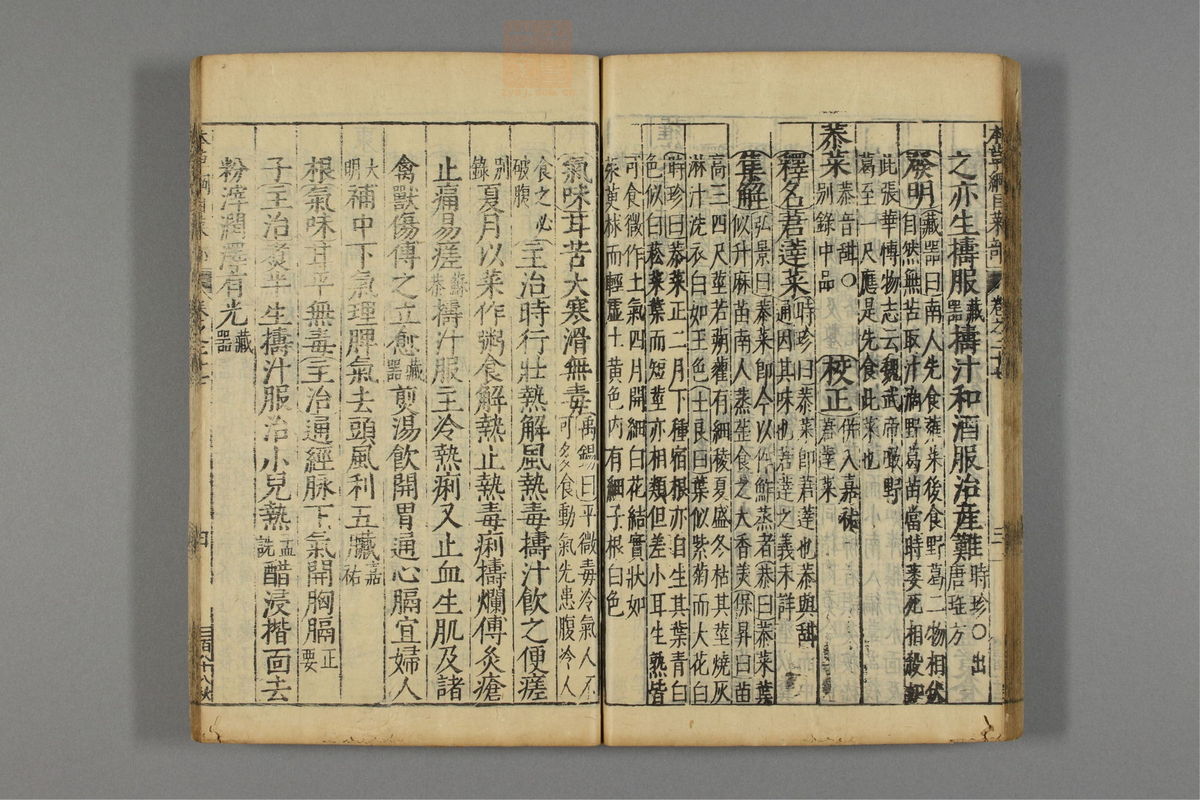 之亦生擣服藏器擣汁和酒服治産難時珍○出唐瑶方
發明藏器曰南人先食蕹菜後食野葛二物相伏
自然無苦取汁滴野葛苗當時萎死相殺如
此張華博物志云魏武帝噉野
葛至一尺應是先食此菜也
菾菜菾音甜○別錄中品 校正併入嘉祐莙薘菜
釋名莙薘菜時珍曰菾菜即莙薘也菾與甜
通因其味也莙薘之義未詳
集解弘景曰菾菜即今以作鮓蒸者恭曰菾菜葉
似升麻苗南人蒸㷟食之大香美保昇曰苗
高三四尺莖若蒴藋有細稜夏盛冬枯其莖燒灰
淋汁洗衣白如玉色士良曰葉似紫菊而大花白
時珍曰菾菜正二月下種宿根亦自生其葉青白
色似白菘菜葉而短莖亦相類但差小耳生熟皆
可食微作土氣四月開細白花結實狀如
茱萸梂而輕虛土黄色内有細子根白色
氣味甘苦大寒滑無毒禹錫曰平微毒冷氣人不可多食動氣先患腹冷人
食之必破腹主治時行壯熱解風熱毒擣汁飲之便瘥
別錄夏月以菜作粥食解熱止熱毒痢擣爛傅灸瘡
止痛易瘥蘇恭擣汁服主冷熱痢又止血生肌及諸
禽獸傷傅之立愈藏器煎湯飲開胃通心膈宜婦人
大明補中下氣理脾氣去頭風利五臟嘉祐
根氣味甘平無毒主治通經脉下氣開胸膈正要
子主治煮半生擣汁服治小兒熱孟詵醋浸揩面去
粉滓潤澤有光藏器